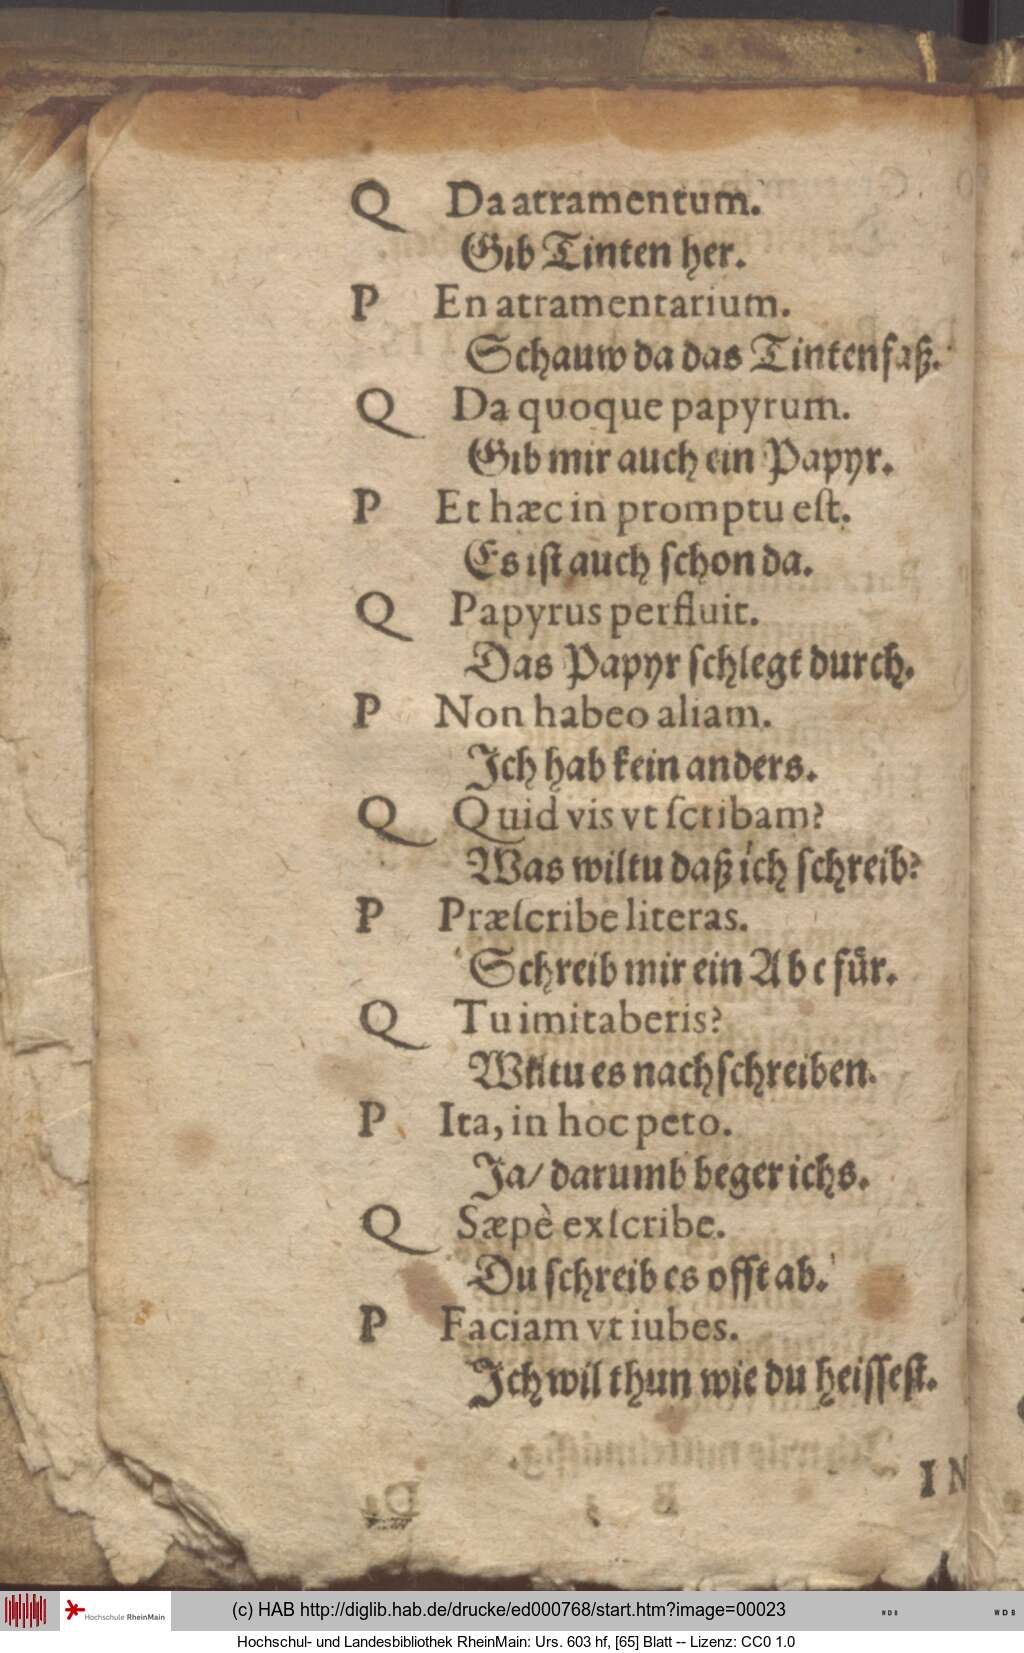 Q Da atramentum.
Gib Tinten her.
P En atramentarium.
Schauw da das Tintenfaß.
Q Da quoque papyrum.
Gib mir auch ein Papyr.
P Et hæc in promptu eſt.
Es iſt auch ſchon da.
Q Papyrus perfluit.
Das Papyr ſchlegt durch.
P Non habeo aliam.
Ich hab kein anders.
Q Quid vis vt ſcribam?
Was wiltu daß ich ſchreib?
P Præſcribe literas.
Schreib mir ein Abc fuͤr.
Q Tu imitaberis?
Wiltu es nachſchreiben.
P Ita, in hoc peto.
Ja/ darumb beger ichs.
Q Sæpè exſcribe.
Du ſchreib es offt ab.
P Faciam vt iubes.
Ich wil thun wie du heiſſeſt.
IN
Hochschule RheinMain
(c) HAB http://diglib.hab.de/drucke/ed000768/start.htm?image=00023
WDB
WDB
Hochschul- und Landesbibliothek RheinMain: Urs. 603 hf, [65] Blatt -- Lizenz: CC0 1.0